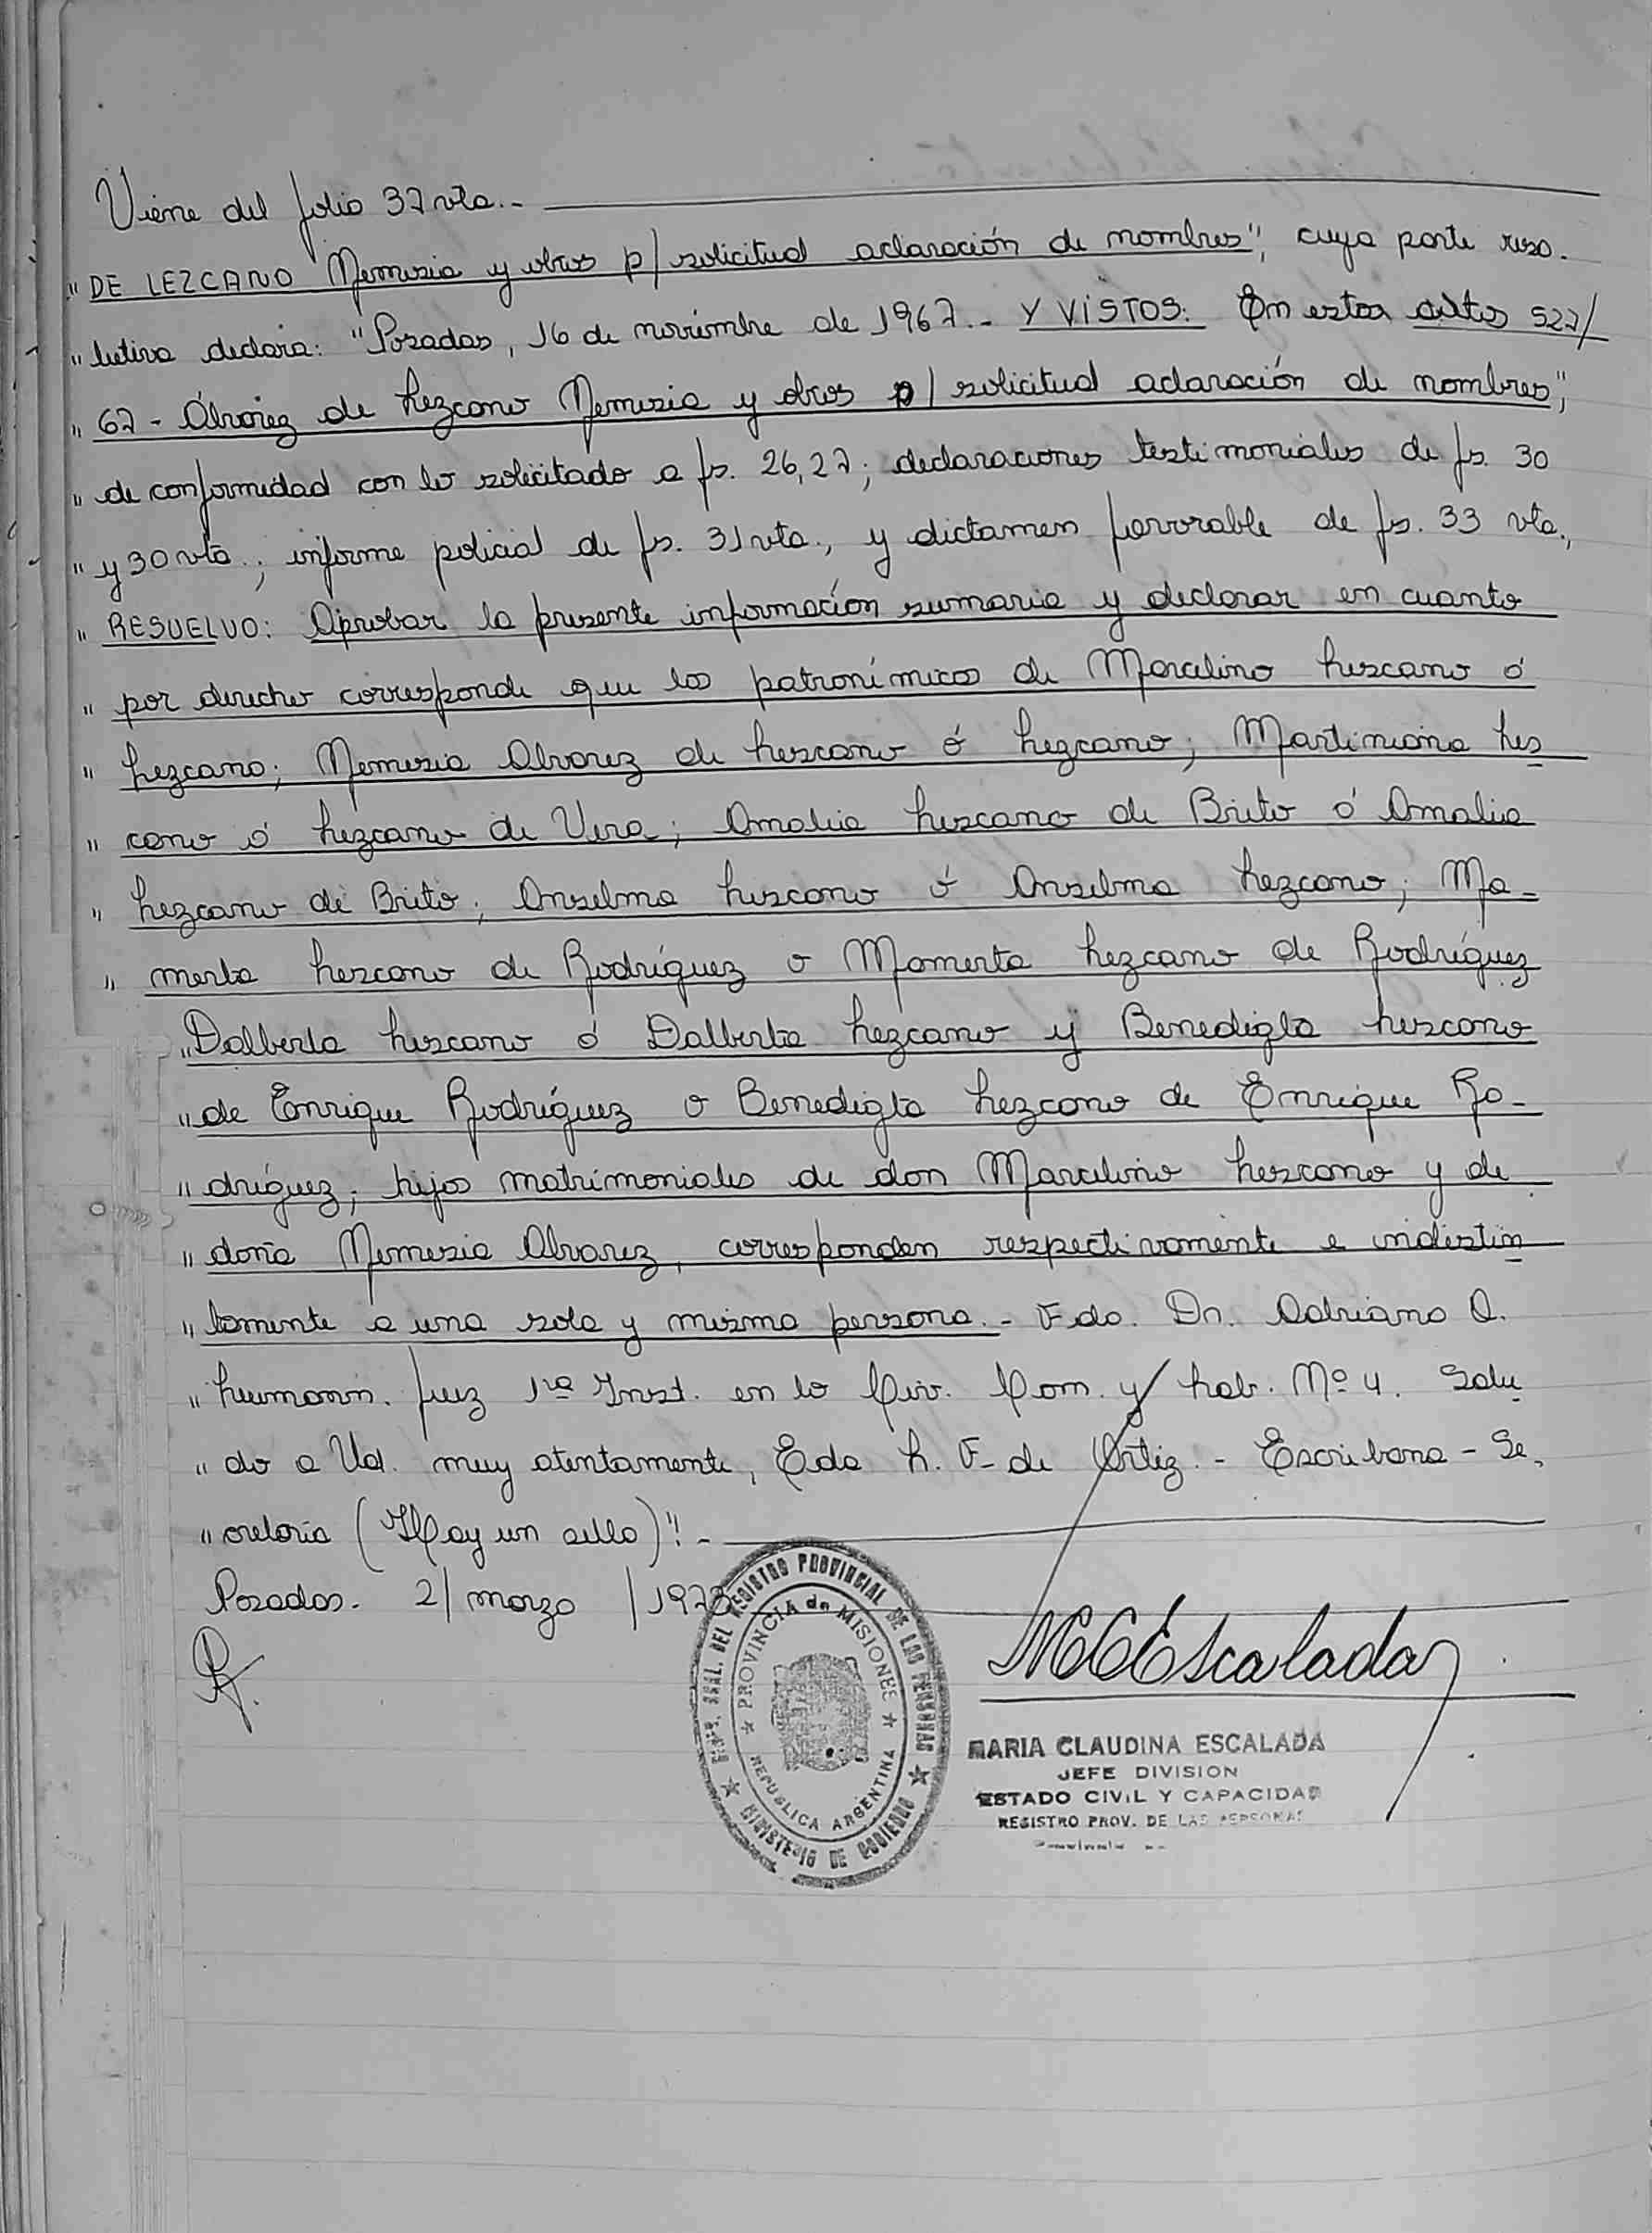 Viene del folio 37 vta.-
"DE LEZCANO Nemesia y otros p/ solicitud aclaración de nombres", cuya parte reso.
"lutiva declara: "Posadas, 16 de noviembre de 1967.- Y VISTOS: En estos autos 527/
"67 - Álvarez de Lezcano Nemesia y otros p/ solicitud aclaración de nombres",
"de conformidad con lo solicitado a fs. 26,27; declaraciones testimoniales de fs. 30
"y 30 vta.; informe policial de fs. 31 vta., y dictamen favorable de fs. 33 vta.,
"RESUELVO: Aprobar la presente información sumaria y declarar en cuanto
"por derecho corresponde que los patronímicos de Marcelino Lescano ó
"Lezcano; Nemesia Alvarez de Lescano ó Lezcano; Martiniana Les
"cano ó Lezcano de Vera; Amalia Lescano de Brito ó Amalia
"Lezcano de Brito; Anselma Lescano ó Anselma Lezcano; Ma-
"merta Lescano de Rodríguez o Mamerta Lezcano de Rodríguez
"Dalberta Lescano ó Dalberta Lezcano y Benedigta Lescano
"de Enrique Rodríguez o Benedigta Lezcano de Enrique Ro-
"dríguez; hijos matrimoniales de don Marcelino Lescano y de
"doña Nemesia Alvarez, corresponden respectivamente e indistin
"tamente a una sola y misma persona.- Fdo. Dr. Adriano O.
"Leumann. Juez 1ra Inst. en lo Civ. Com. y Lab. Nº 4. Salu
"do a Ud. muy atentamente, Eda L. F- de Ortiz.- Escribana - Se,
"cretaria (Hay un sello)".-
Posadas. 2/ marzo /1978
MCEscalada
DEL REGISTRO PROVINCIAL DE LAS PERSONAS ★ MINISTERIO DE GOBIERNO ★
★ PROVINCIA de MISIONES ★ REPUBLICA ARGENTINA
MARIA CLAUDINA ESCALADA
JEFE DIVISION
ESTADO CIVIL Y CAPACIDAD
REGISTRO PROV. DE LAS PERSONAS